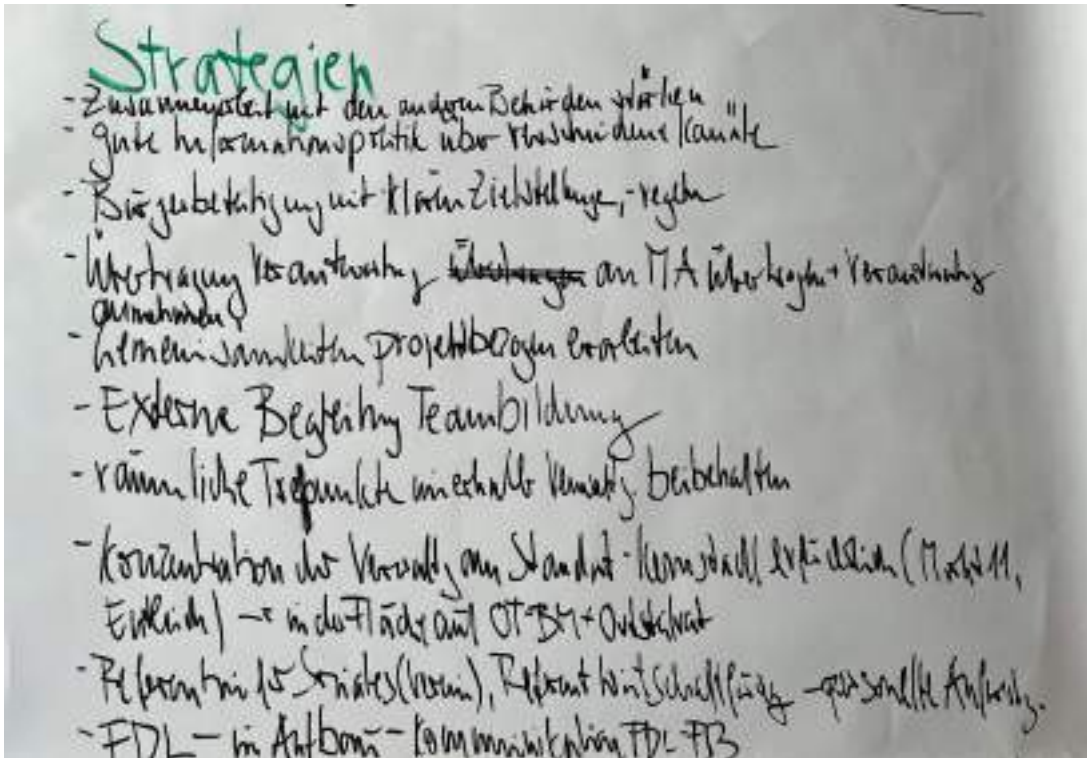 Strategien
- Zusammenarbeit mit den anderen Behörden stärken
- gute Informationspolitik über verschiedene Kanäle
- Bürgerbeteiligung mit klaren Zielstellungen, -regeln
- Übertragung Verantwortung an MA übertragen + Verantwortung
annehmen
- Gemeinsamkeiten projektbezogen erarbeiten
- Externe Begleitung Teambildung
- räumliche Trepunkte innerhalb Verwaltg beibehalten
- Konzentration der Verwaltg am Standort - Kernstadt (Markt 11,
→ in der Fläche auf OT-BM + Ortschaftsrat
- Referentin für Soziales (Verein), Referent Wirtschaftsförderg → personelle
- FDL - im Aufbau - Kommunikation FDL-FB